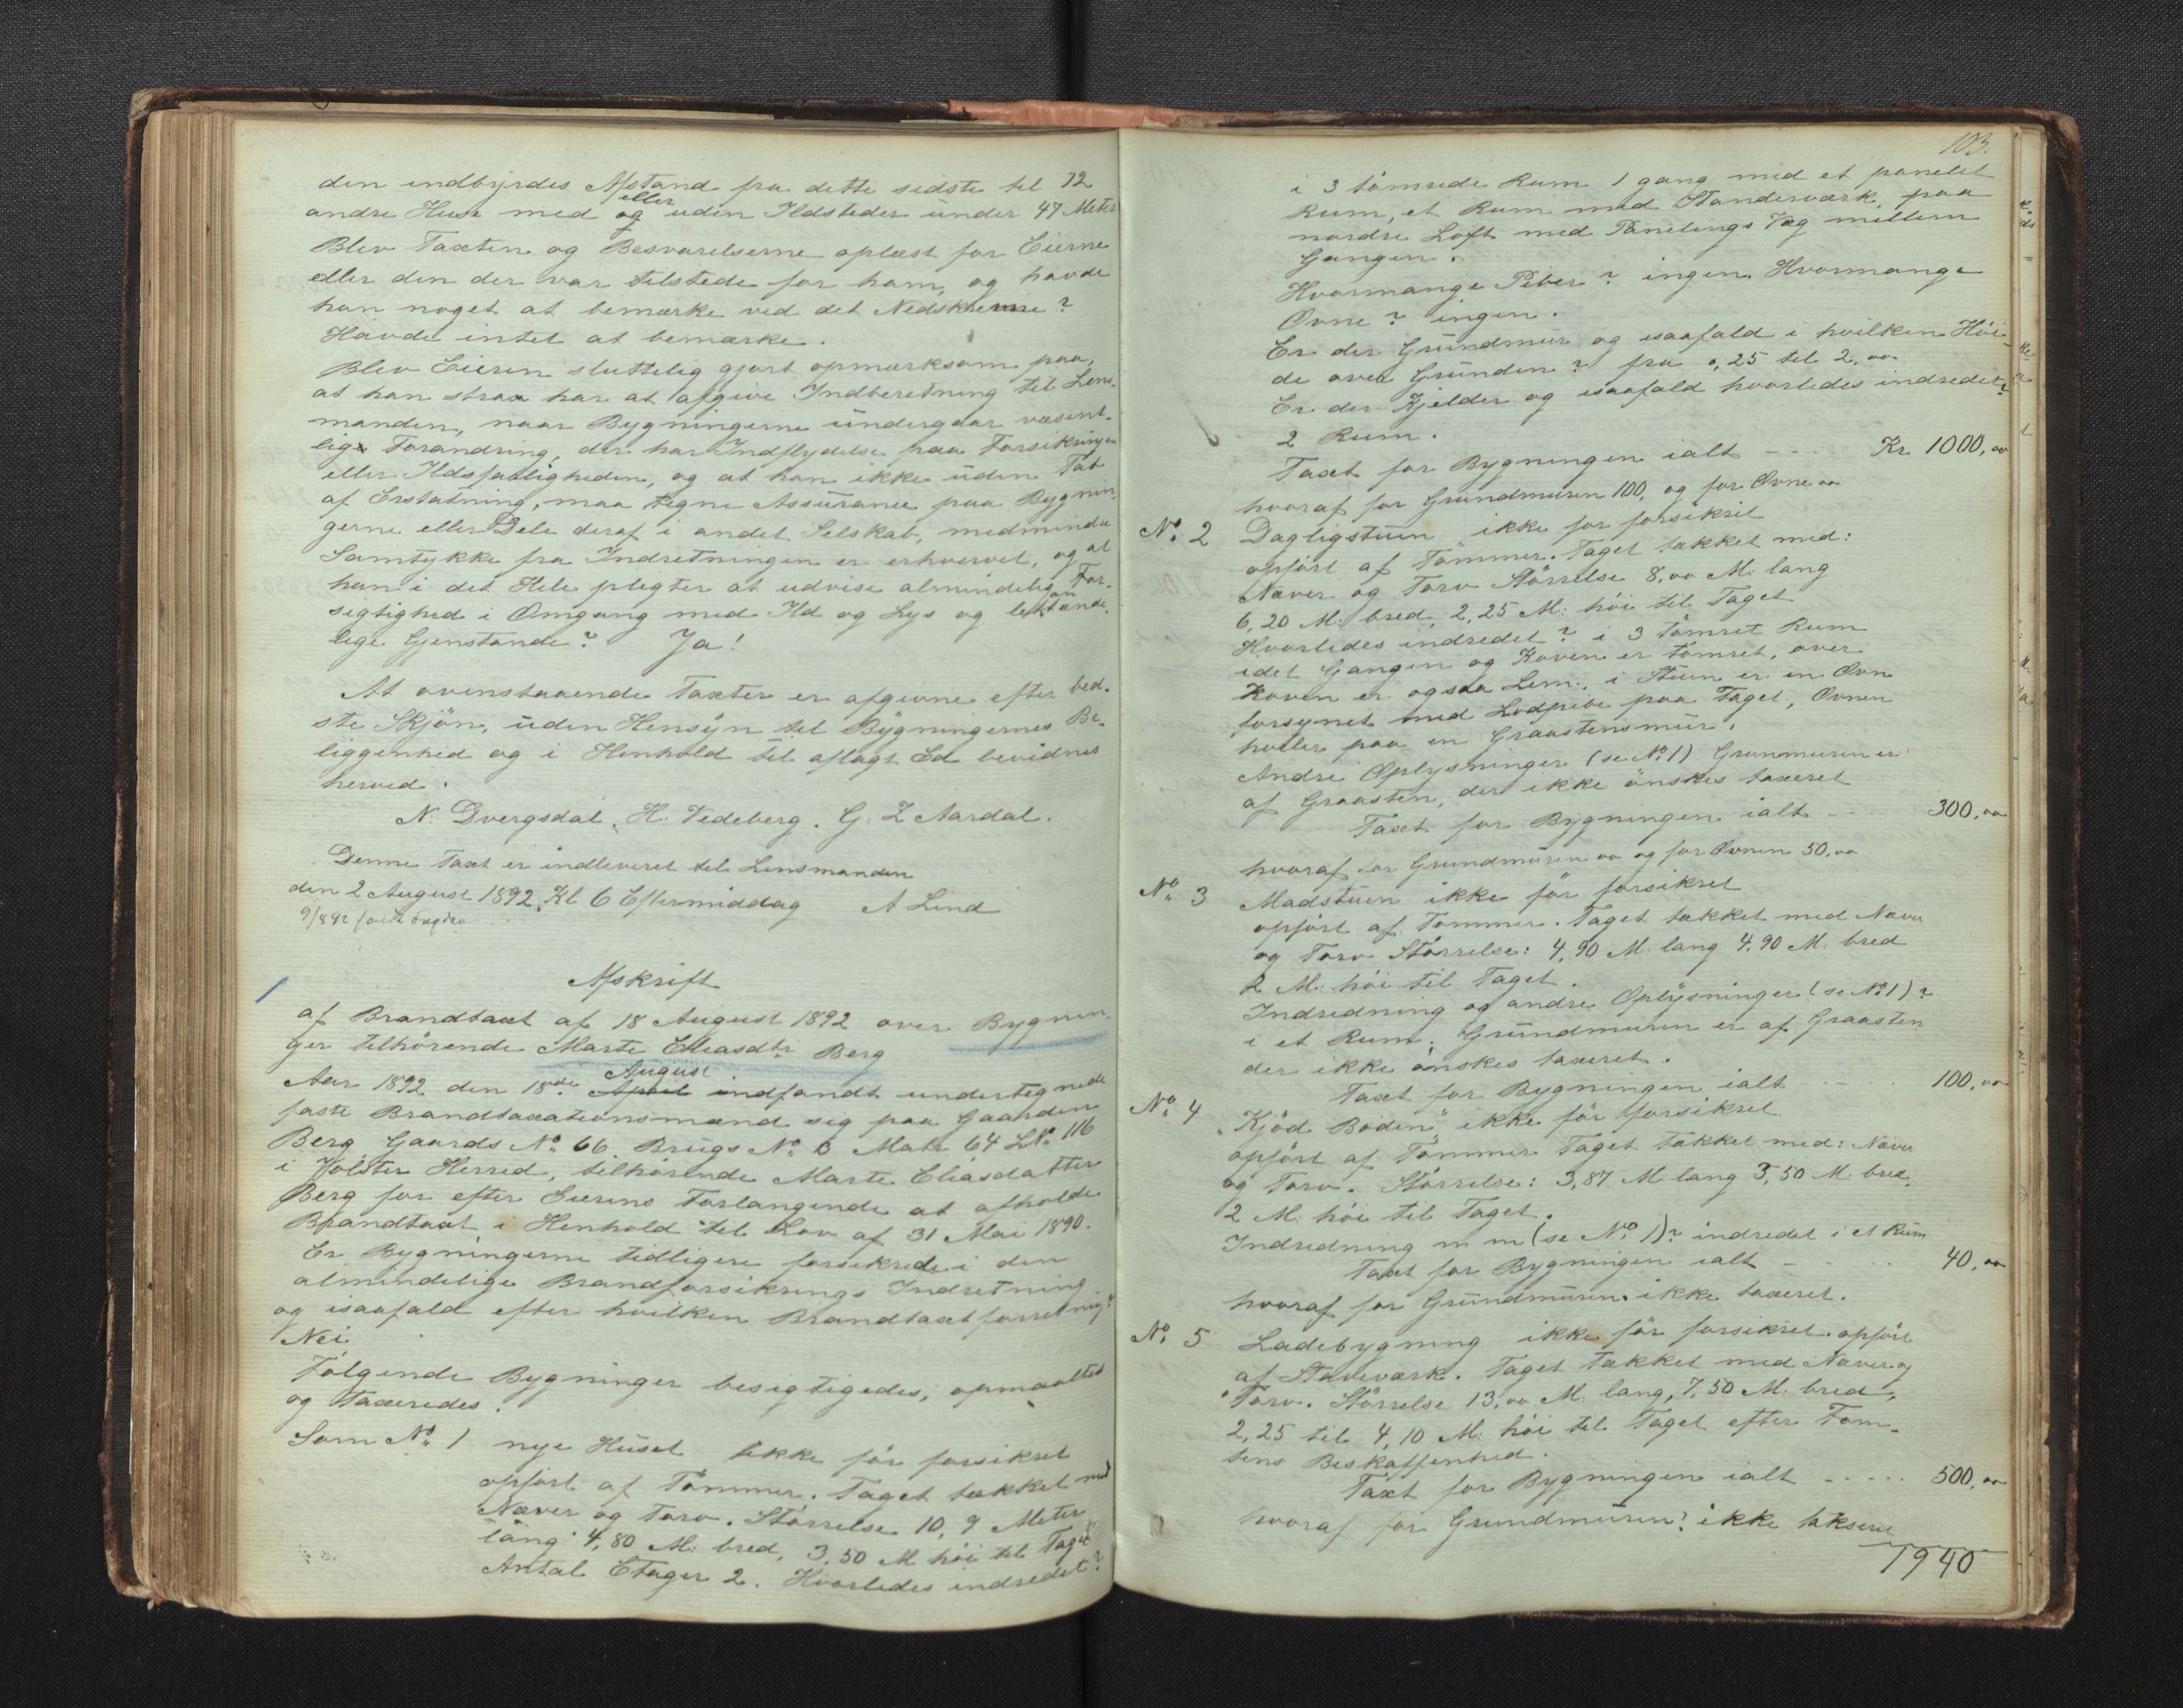 den indbyrdes Afstand fra dette sidste til 12
eller
andre Huse med og uden Ildsteder under 47 Meter
Blev Taxten og Besvarelserne oplæst for Eierne
eller den der var tilstede for ham, og havde
han noget at bemærke ved det Nedskrevne?
Havde intet at bemærke.
Blev Eieren sluttelig gjort opmærksom paa,
at han strax har at afgive Indberetning til Lens-
manden, naar Bygningerne undergaar væsent-
lig Forandring, der har Indflydelse paa Forsikringen
eller Ildsfarligheden, og at han ikke uden Tab
af Erstatning, maa tegne Assurance paa Bygnin-
gerne eller Dele deraf i andet Selskab, medmindre
Samtykke fra Indretningen er erhvervet, og at
han i det Hele plegter at udvise almindelig For-
sigtighed i Omgang med Ild og Lys og let antænde-
lige Gjenstande? Ja!
At ovenstaaende Taxter er afgivne efter bed-
ste Skjön, uden Hensyn til Bygningernes Be-
liggenhed og i Henhold til aflagt Ed bevidnes
herved.
N. Dvergsdal, H. Vedeberg. G. Z Aardal.
Denne Taxt er indleveret til Lensmanden
den 2 August 1892, Kl 6 Eftermiddag A Lind
9/8 92
Afskrift
af Brandtaxt af 18 August 1892 over Bygnin-
ger tilhörende Marte Eliasdtr Berg
August
Aar 1892 den 18de April indfandt undertegnede
faste Brandtaxationsmænd sig paa Gaarden
Berg Gaards No. 66. Brugs No. 3 Matr 64 LNo. 116
i Jölster Herred, tilhörende Marte Eliasdatter
Berg for efter Eierens Forlangende at afholde
Brandtaxt i Henhold til Lov af 31 Mai 1890.
Er Bygningerne tidligere forsikrede i den
almindelige Brandforsikrings Indretning
og isaafald efter hvilken Brandtaxtforretning?
Nei
Fölgende Bygninger besigtigedes, opmaaltes
og taxeredes.
Som No. 1 nye Huset ikke för forsikret
opfört af Tömmer. Taget tækket med
Næver og Torv. Störrelse 10,9 Meter
lang 4,80 M. bred, 3,50 M höi til Taget
Antal Etager 2. Hvorledes indredet?
103.
i 3 tömrede Rum 1 gang med et panelet
Rum, et Rum med Standerværk, paa
nordre Loft med Panelings Væg mellem
Gangen.
Hvormange Piber? ingen. Hvormange
Ovne? ingen.
Er der Grundmur og isaafald i hvilken Höi-
de over Grunden? fra 0,25 til 2,00
Er der Kjelder og isaafald hvorledes indredet?
2 Rum.
Taxt for Bygningen ialt - - - - Kr 1000,00
hvoraf for Grundmuren 100, og for Ovne 00
No. 2 Dagligstuen ikke for forsikret
opfört af Tömmer. Taget tækket med:
Næver og Torv Störrelse 8,00 M. lang
6,20 M. bred, 2,25 M. höi til Taget
Hvorledes indredet? i 3 tömret Rum
idet Gangen og Koven er tömret, over
Koven er ogsaa Lem, i Stuen er en Ovn
forsynet med Lodpibe paa Taget, Ovnen
hviler paa en Graastensmur.
Andre Oplysninger (se No. 1) Grunmuren er
af Graasten, der ikke önskes taxeret
Taxt for Bygningen ialt - - - 300,00
hvoraf for Grundmuren 00 og for Ovnen 50,00
No. 3 Madstuen ikke för forsikret
opfört af Tömmer. Taget tækket med Næver
og Torv Störrelse: 4,90 M. lang 4,90 M. bred
2 M. höi til Taget.
Indredning og andre Oplysninger (se No. 1)?
i et Rum, Grundmuren er af Graasten
der ikke önskes taxeret.
Taxt for Bygningen ialt - - - 100,00
No. 4 "Kjöd Boden" ikke för forsikret
opfört af Tömmer Taget tækket med: Næver
og Torv. Störrelse: 3,87 M lang 3,50 M. bred,
2 M. höi til Taget.
Indredning m m (se No. 1)? indredet i et Rum
Taxt for Bygningen ialt - - - - 40,00
hvoraf for Grundmuren ikke taxeret.
No. 5 Ladebygning ikke för forsikret. opfört
af Staveværk. Taget tækket med Næver og
Torv. Störrelse 13,00 M. lang, 7,50 M. bred,
2,25 til 4,10 M. höi til Taget efter Tom-
tens Beskaffenhed.
Taxt for Bygningen ialt - - - - - 500,00
hvoraf for Grundmuren? ikke takseret
1940